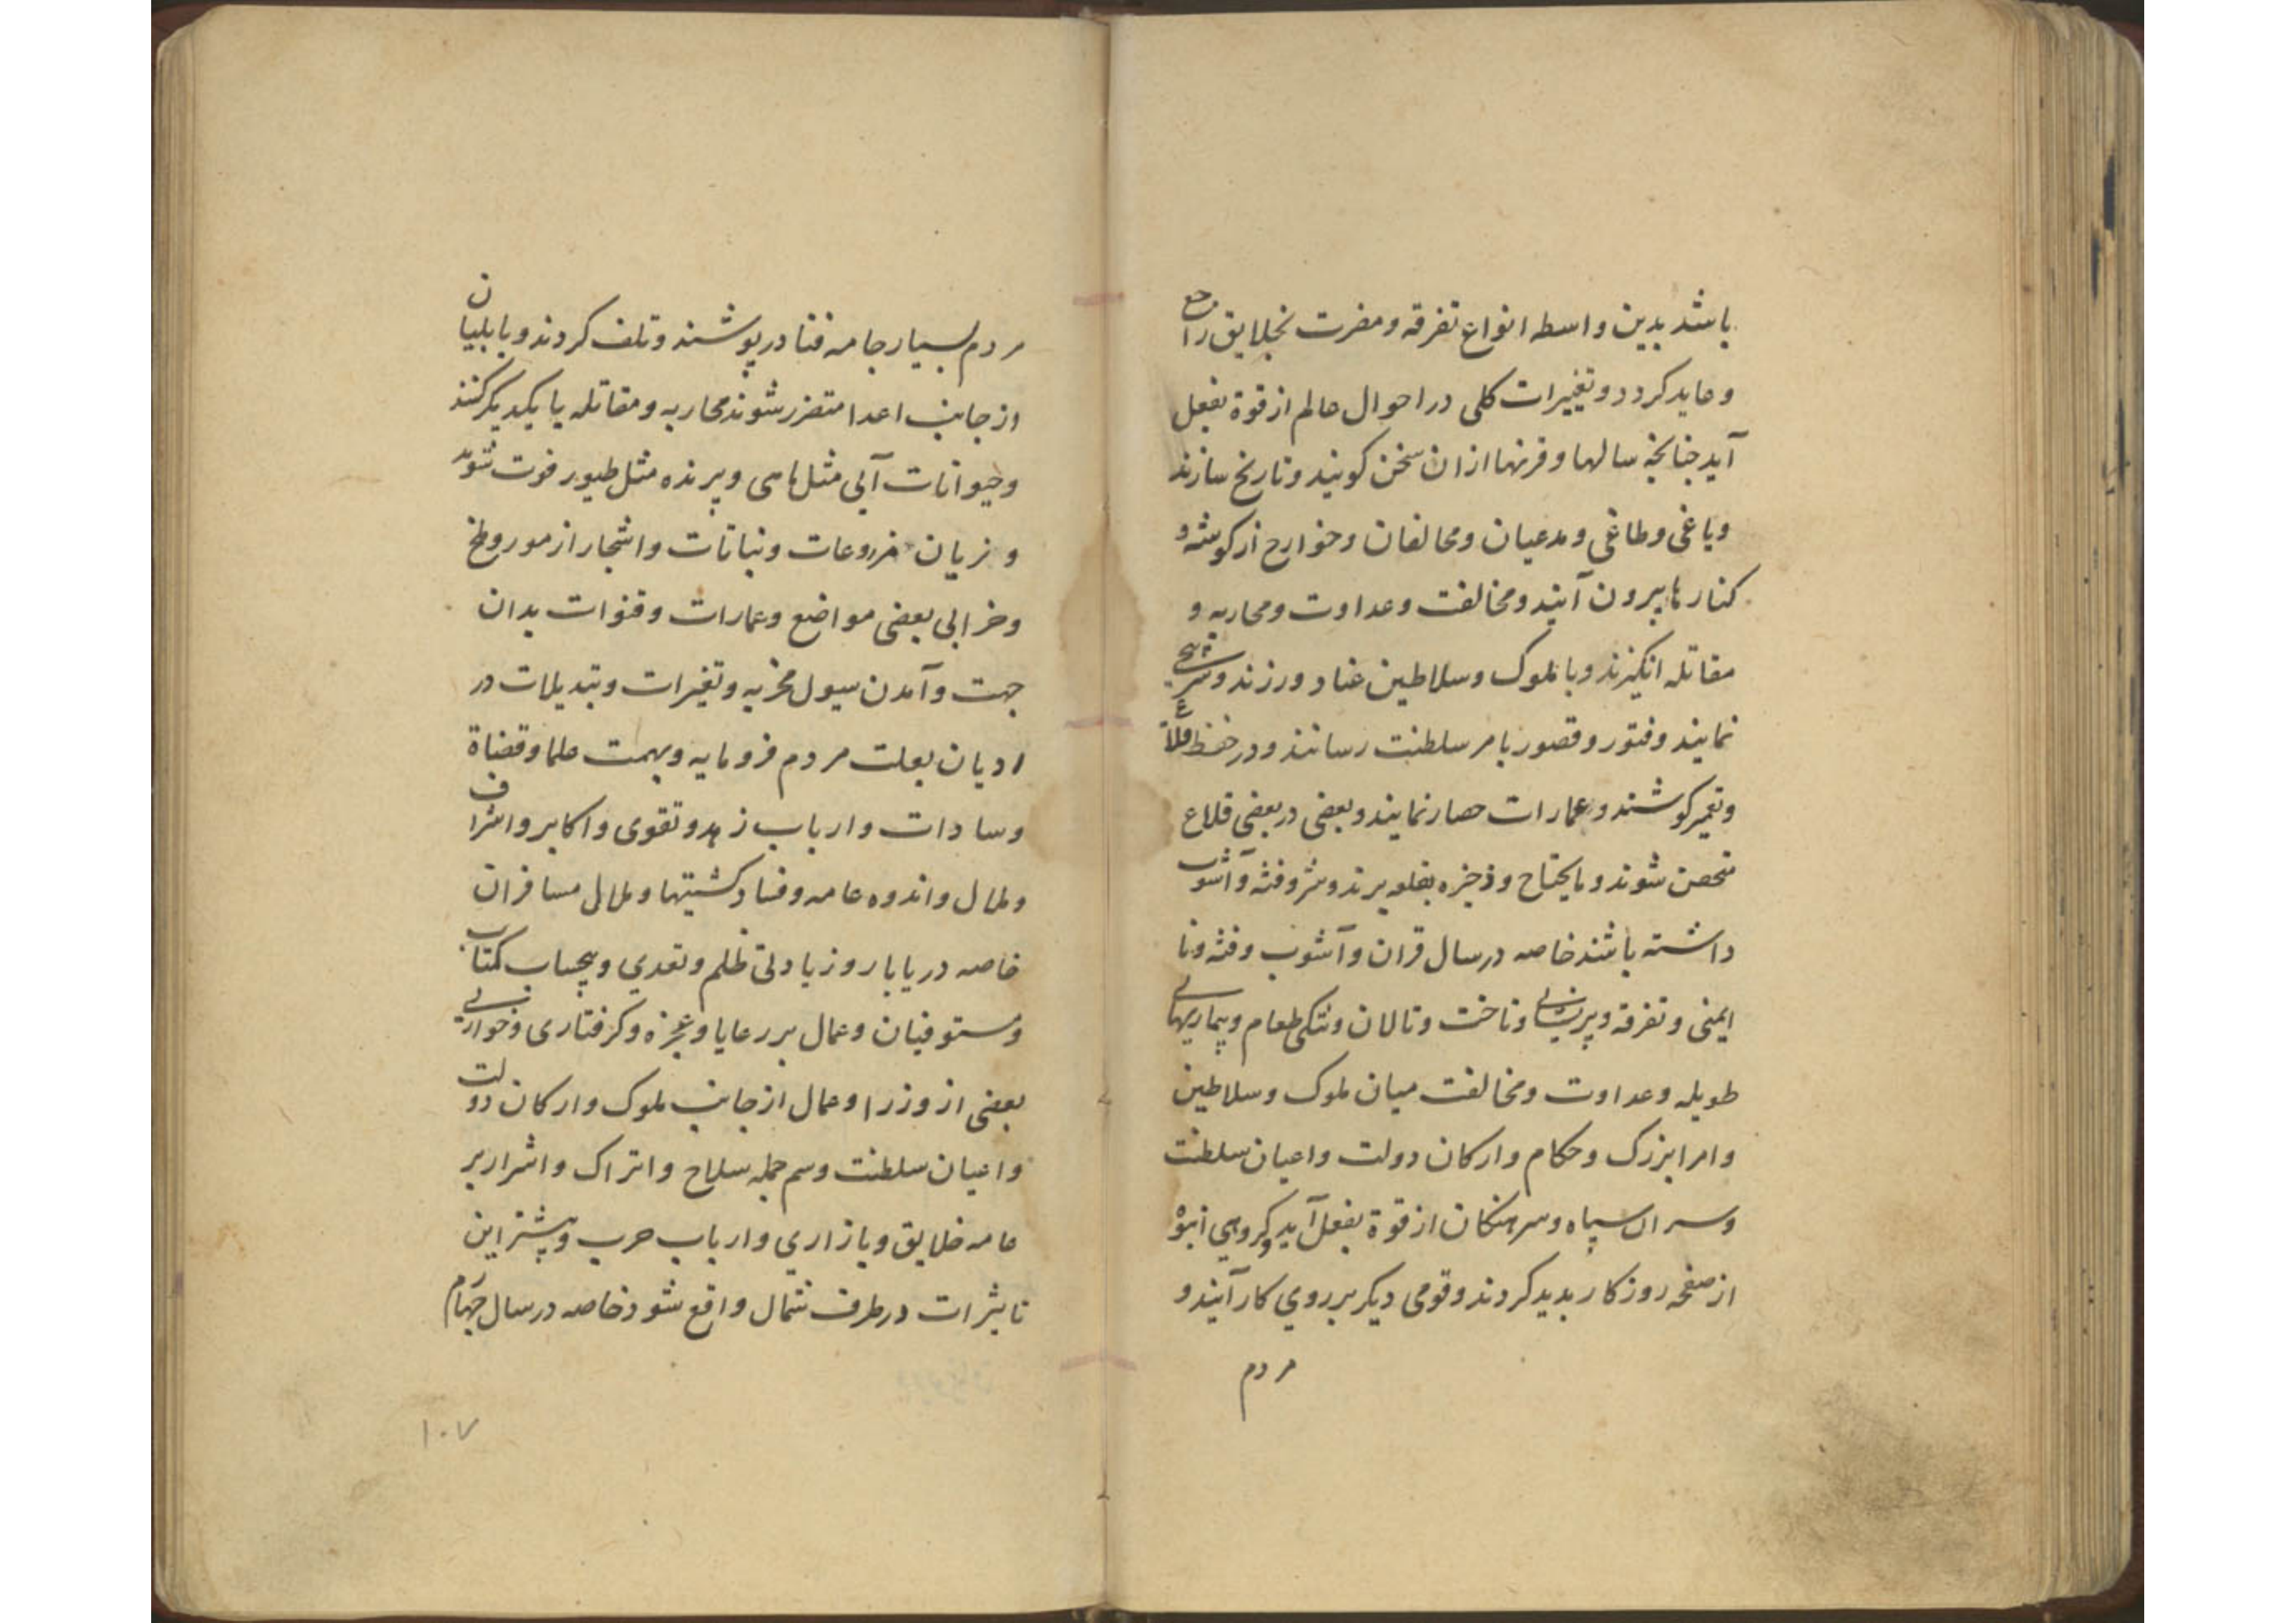 باشد بدین واسطه انواع تفرقه و مضرت بخلایق راجع
و عاید کردد و تغییرات کلی در احوال عالم از قوة بفعل
آید چنانچه سالها و قرنها ازان سخن کویند و تاریخ سازند
و یاغی و طاغی و مدعیان و مخالفان و خوارج از کوشه و
کنارها بیرون آیند و مخالفت و عداوت و محاربه و
مقاتله انکیزند و با ملوک و سلاطین عناد ورزند و سرپیچی
نمایند و فتور و قصور بامر سلطنت رسانند و در حفظ قلاع
و تعمیر کوشند و عمارات حصار نمایند و بعضی در بعضی قلاع
متحصن شوند و مایحتاج و ذخیره بقلعه برند و شر و فتنه و آشوب
داشته باشند خاصه در سال قران و آشوب و فتنه و نا
ایمنی و تفرقه و پریشانی و تاخت و تالان و تنکی طعام و بیماریهای
طویله و عداوت و مخالفت میان ملوک و سلاطین
و امرا بزرک و حکام و ارکان دولت و اعیان سلطنت
و سران سپاه و سرهنکان از قوة بفعل آید و کروهی انبوه
از صفحه روزکار بدید کردند و قومی دیکر بر روی کار آیند و
مردم
مردم بسیار جامه فنا در پوشند و تلف کردند و بابلیان
از جانب اعدا متضرر شوند محاربه و مقاتله با یکدیکر کنند
و حیوانات آبی مثل ماهی و پرنده مثل طیور فوت شوند
و زیان مزروعات و نباتات و اشجار از مور و ملخ
و خرابی بعضی مواضع و عمارات و قنوات بدان
جهت و آمدن سیول مخربه و تغیرات و تبدیلات در
ادیان بعلت مردم فرومایه و تهمت علما و قضاة
و سادات و ارباب زهد و تقوی و اکابر و اشراف
و ملال و اندوه عامه و فساد کشتیها و ملال مسافران
خاصه دریابار و زیادتی ظلم و تعدی و بیحساب کتاب
و مستوفیان و عمال بر رعایا و عجزه و کرفتاری و خواری
بعضی از وزرا و عمال از جانب ملوک و ارکان دولت
و اعیان سلطنت و سم جمله سلاح و اتراک و اشرار بر
عامه خلایق و بازاری و ارباب حرب و بیشتر این
تاثیرات در طرف شمال واقع شود خاصه در سال چهارم
۱۰۷